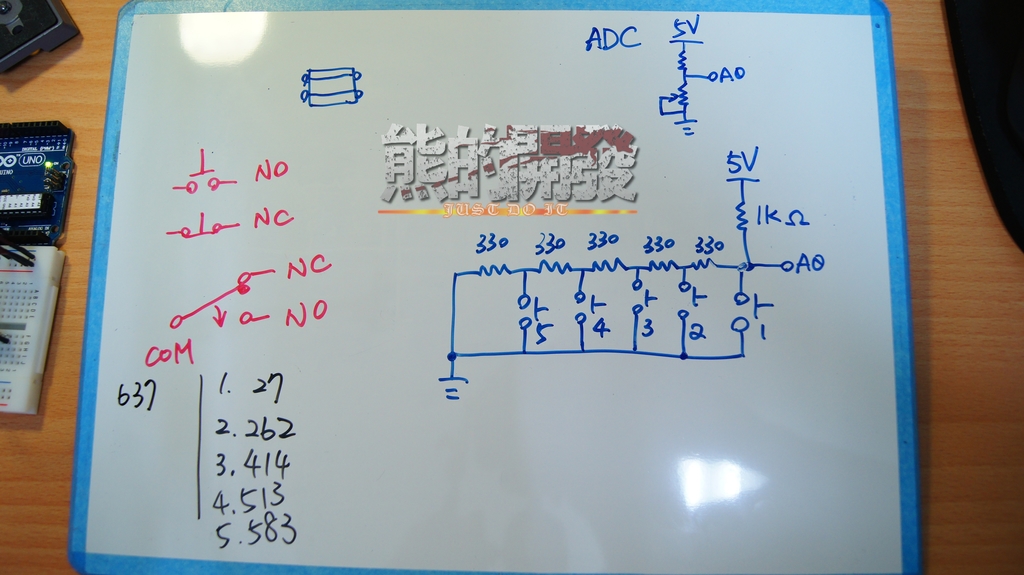 ADC
5V
A0
熊的開發
JUST DO IT
NO
NC
NC
NO
COM
5V
1KΩ
330 330 330 330 330
A0
5 4 3 2 1
637
1. 27
2. 262
3. 414
4. 513
5. 583
UNO